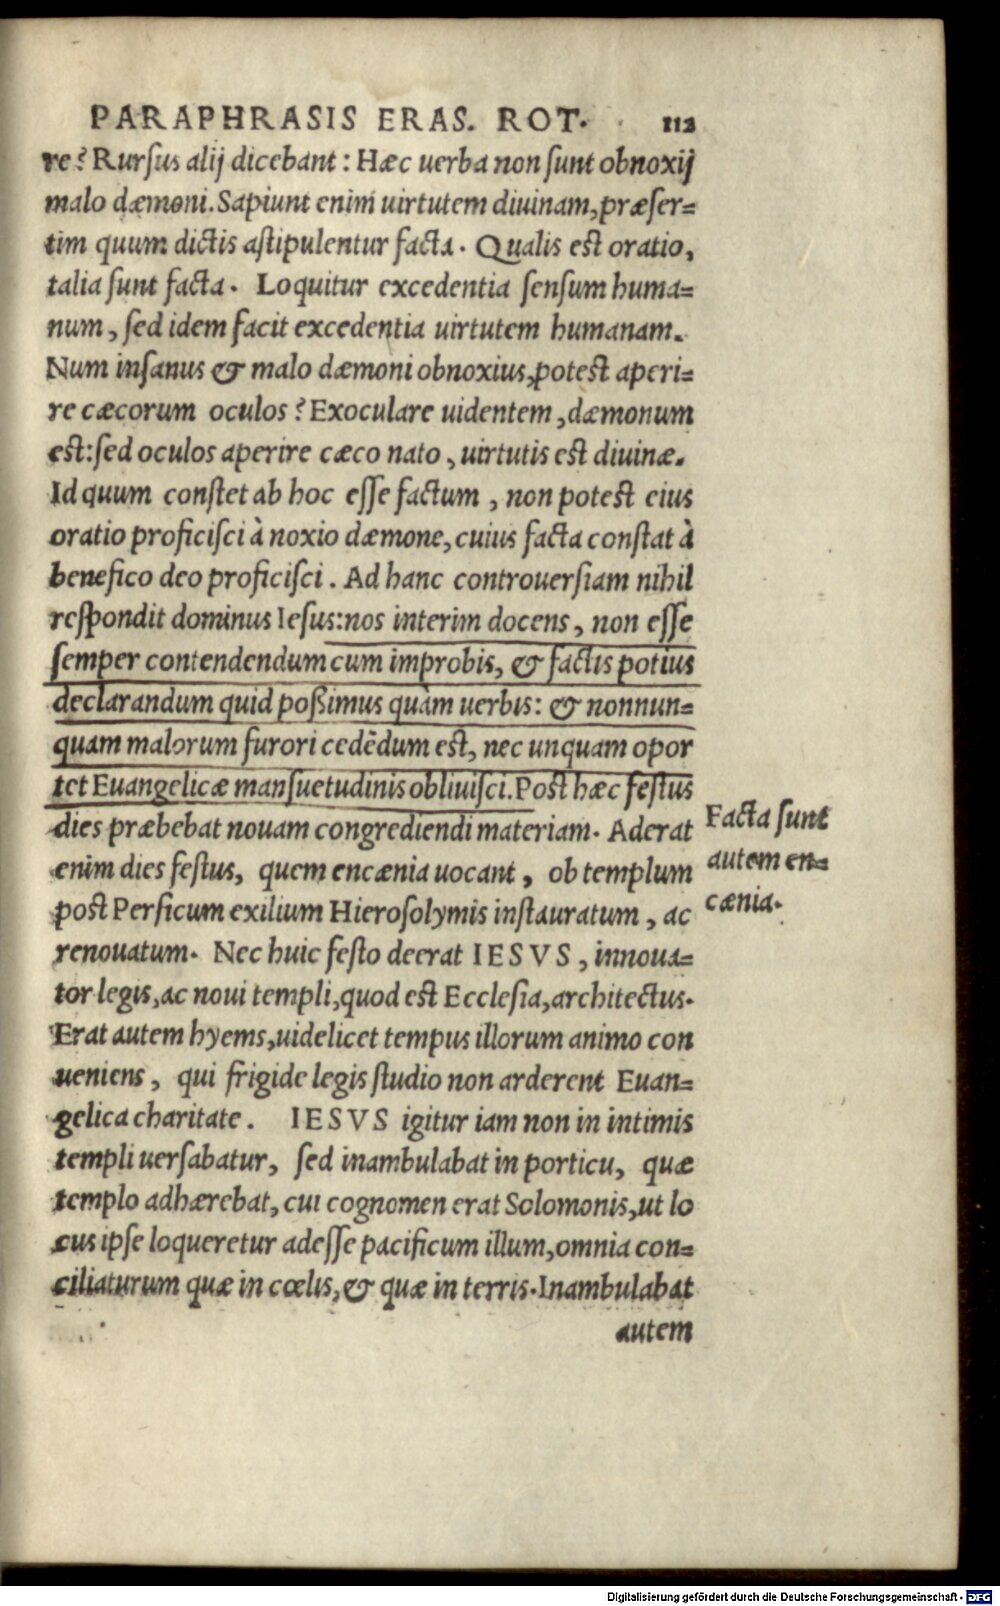 PARAPHRASIS ERAS. ROT. 112
re? Rursus alij dicebant: Hæc uerba non sunt obnoxij
malo dæmoni. Sapiunt enim uirtutem diuinam, præser=
tim quum dictis astipulentur facta. Qualis est oratio,
talia sunt facta. Loquitur excedentia sensum huma=
num, sed idem facit excedentia uirtutem humanam.
Num insanus & malo dæmoni obnoxius, potest aperi=
re cæcorum oculos? Exoculare uidentem, dæmonum
est: sed oculos aperire cæco nato, uirtutis est diuinæ.
Id quum constet ab hoc esse factum, non potest eius
oratio proficisci à noxio dæmone, cuius facta constat à
benefico deo proficisci. Ad hanc controuersiam nihil
respondit dominus Iesus: nos interim docens, non esse
semper contendendum cum improbis, & factis potius
declarandum quid poßimus quàm uerbis: & nonnun=
quam malorum furori cedēdum est, nec unquam opor
tet Euangelicæ mansuetudinis obliuisci. Post hæc festus
dies præbebat nouam congrediendi materiam. Aderat
enim dies festus, quem encænia uocant, ob templum
post Persicum exilium Hierosolymis instauratum, ac
renouatum. Nec huic festo deerat IESVS, innoua=
tor legis, ac noui templi, quod est Ecclesia, architectus.
Erat autem hyems, uidelicet tempus illorum animo con
ueniens, qui frigide legis studio non arderent Euan=
gelica charitate. IESVS igitur iam non in intimis
templi uersabatur, sed inambulabat in porticu, quæ
templo adhærebat, cui cognomen erat Solomonis, ut lo
cus ipse loqueretur adesse pacificum illum, omnia con=
ciliaturum quæ in cœlis, & quæ in terris. Inambulabat
autem
Facta sunt
autem en=
cænia.
Digitalisierung gefördert durch die Deutsche Forschungsgemeinschaft - DFG